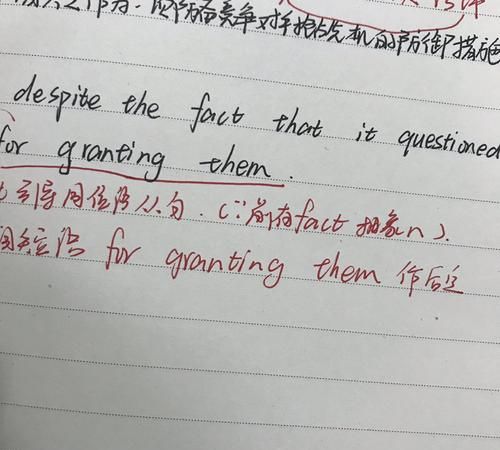 防备竞争对手抢占先机的防御措施
despite the fact that it questioned
for granting them.
引导同位语从句. (∵前有fact 抽象n).
for granting them 作后定